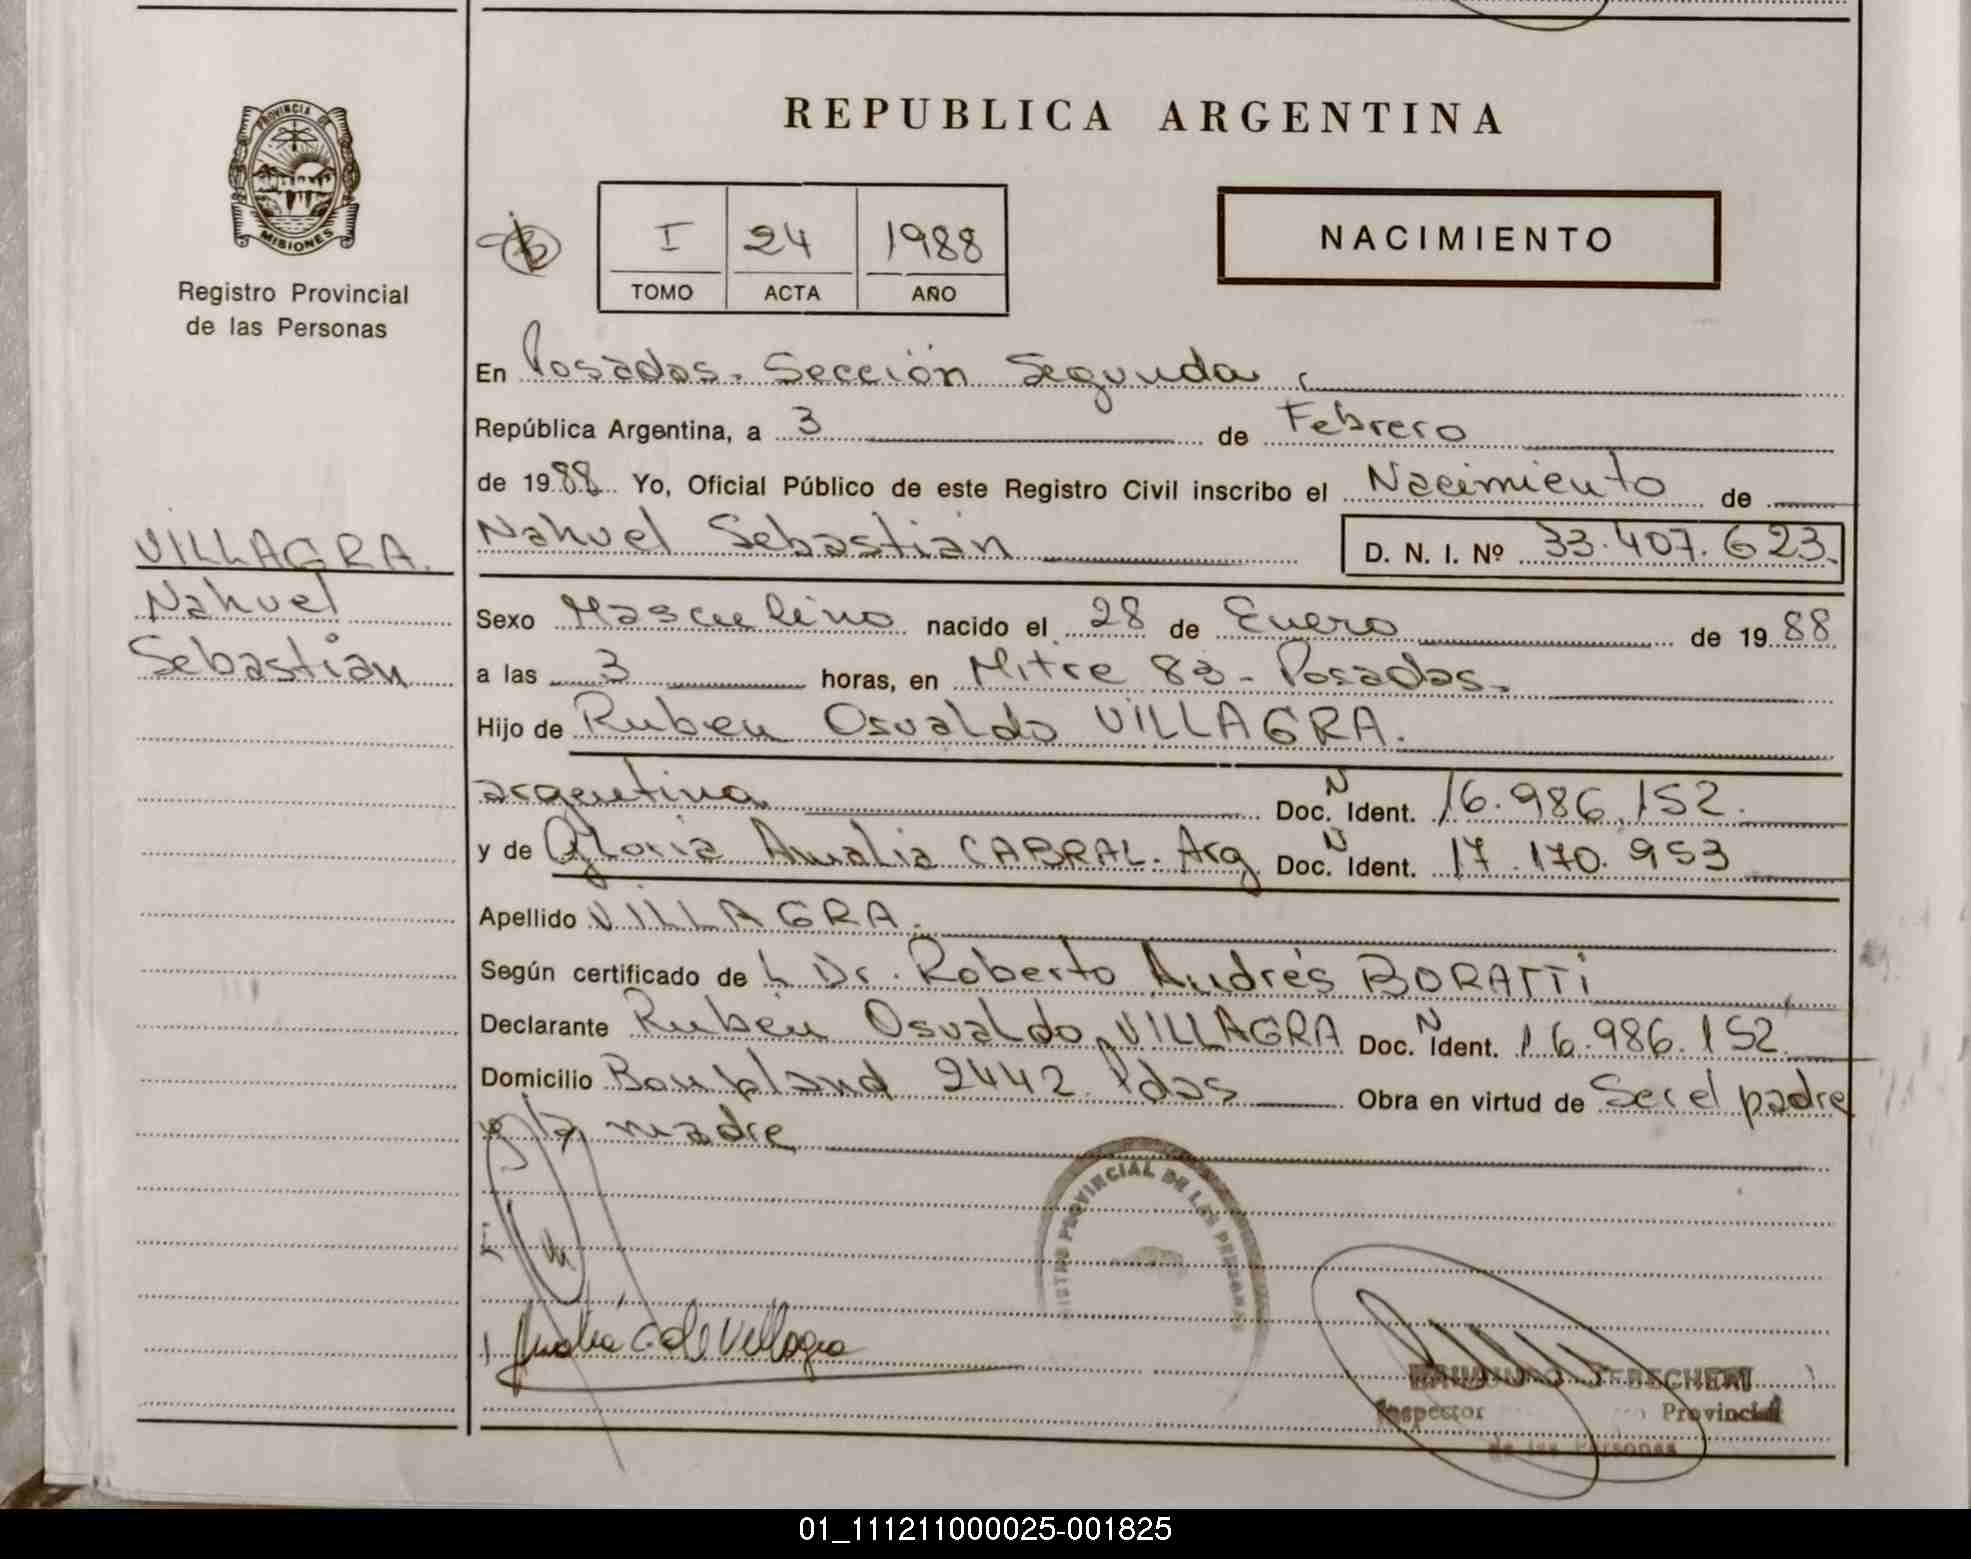 PROVINCIA DE
MISIONES
Registro Provincial
de las Personas
VILLAGRA.
Nahuel
Sebastián
REPUBLICA ARGENTINA
I 24 1988
TOMO ACTA AÑO
NACIMIENTO
En Posadas. Sección Segunda
República Argentina, a 3 de Febrero
de 1988 Yo, Oficial Público de este Registro Civil inscribo el Nacimiento de
Nahuel Sebastián D. N. I. Nº 33.407.623.
Sexo Masculino nacido el 28 de Enero de 1988
a las 3 horas, en Mitre 83 - Posadas.
Hijo de Ruben Osvaldo VILLAGRA.
argentina Doc. N Ident. 16.986.152.
y de Gloria Amalia CABRAL. Arg Doc. N Ident. 17.170.953
Apellido VILLAGRA.
Según certificado de Dr. Roberto Andrés BORATTI
Declarante Rubén Osvaldo VILLAGRA Doc. N Ident. 16.986.152
Domicilio 2442 Pdas Obra en virtud de Ser el padre
y la madre
PROVINCIAL DE LAS PERSONAS
Amalia C. de Villagra
Inspector Provincial
de las Personas
01_111211000025-001825